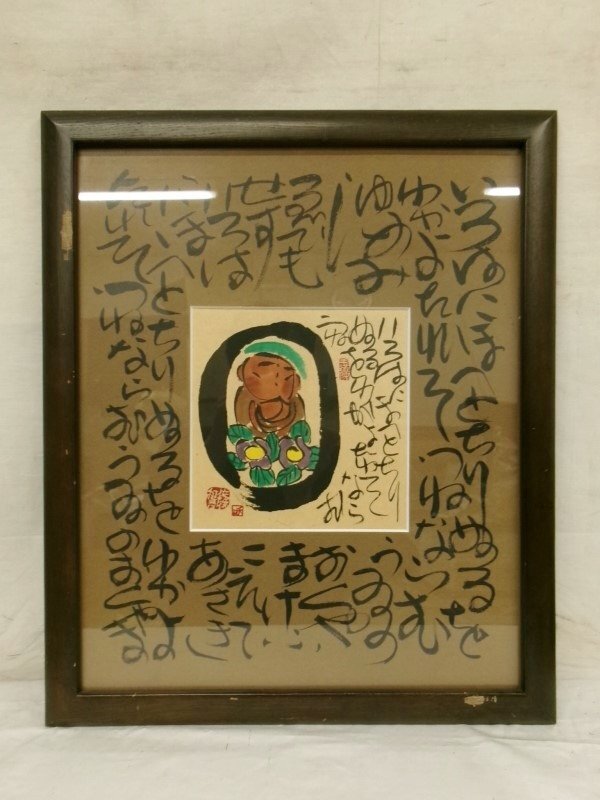 いろはにほへとちりぬるを
わがよたれそつねならむ
うゐの
おくや
まけふ
こえて
あさき
ゆめみ
じ
ゑひても
せず
いろは
にほへとちりぬるをわがよ
たれそつねならむうゐのおくやま
いろはにほへとちり
ぬるをわがよたれそ
つねならむ